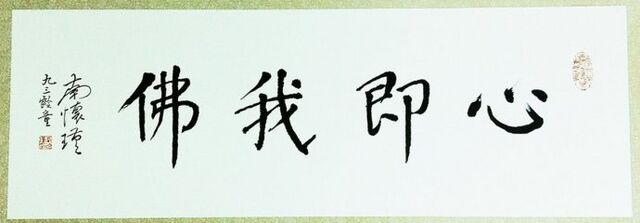 心即我佛
南懷瑾
九三齡童